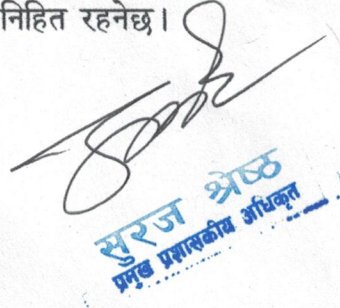 निहित रहनेछ।
सुरज श्रेष्ठ
प्रमुख प्रशासकीय अधिकृत